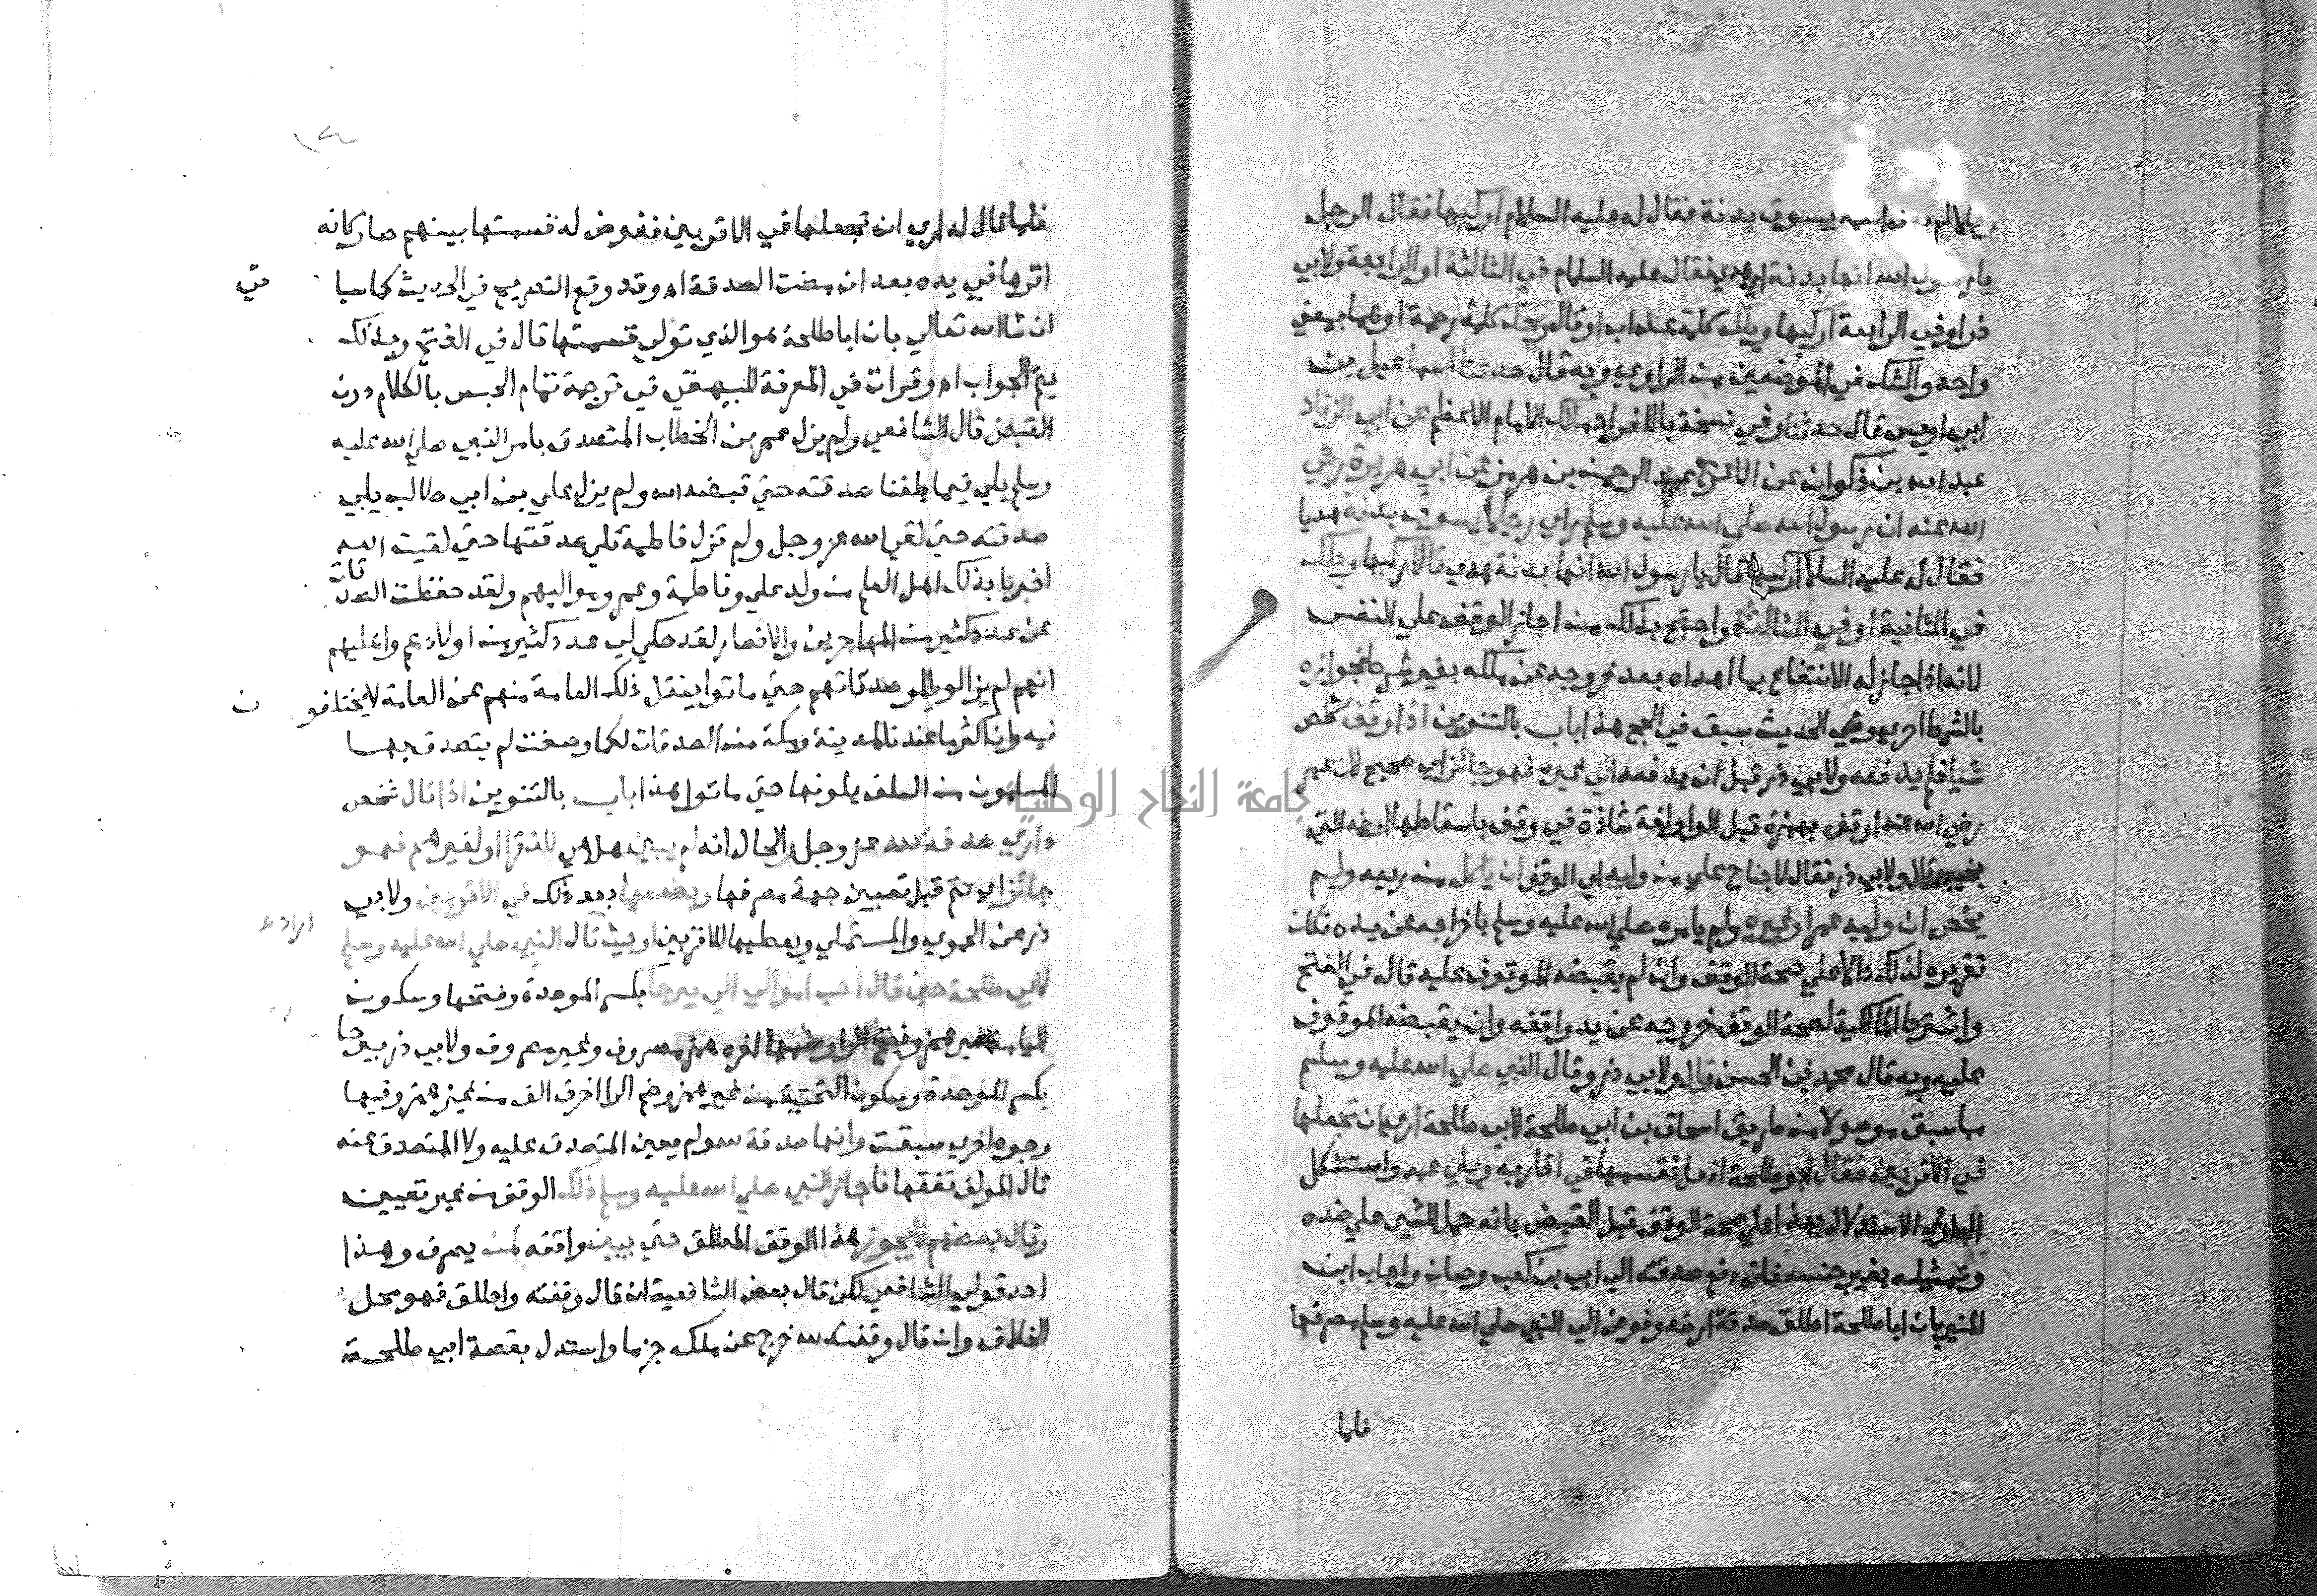 رجلا لم يعرف اسمه يسوق بدنة فقال له عليه السلام اركبها فقال الرجل
يا رسول الله انها بدنة اي هدي فقال عليه السلام في الثالثة او الرابعة ولابي
ذر او في الرابعة اركبها ويلك كلمة عذاب او قال ويحك كلمة رحمة او هما بمعني
واحد والشك في الموضعين من الراوي وبه قال حدثنا اسماعيل بن
ابي اويس قال حدثنا وفي نسخة بالافراد مالك الامام الاعظم عن ابي الزناد
عبد الله بن ذكوان عن الاعرج عبد الرحمن بن هرمز عن ابي هريرة رضي
الله عنه ان رسول الله صلي الله عليه وسلم راي رجلا يسوق بدنة هديا
فقال له عليه السلام اركبها قال يا رسول الله انها بدنة هدي قال اركبها ويلك
في الثانية او في الثالثة واحتج بذلك من اجاز الوقف علي النفس
لانه اذا جاز له الانتفاع بما اهداه بعد خروجه عن ملكه بغير شرط فجوازه
بالشرط احري وهي الحديث سبق في الحج هذا باب بالتنوين اذا وقف شخص
شيا فلم يدفعه ولابي ذر قبل ان يدفعه الي غيره فهو جائز اي صحيح لان عمر
رضي الله عنه اوقف بهمزة قبل الواو لغة شاذة في وقف باسقاطها ارضه التي
بخيبر وقال ولابي ذر فقال لا جناح علي من وليه اي الوقف ان ياكل من ريعه ولم
يخص ان وليه عمر او غيره ولم يامره صلي الله عليه وسلم باخراجه عن يده فكان
تقريره لذلك دالا علي صحة الوقف وان لم يقبضه الموقوف عليه قاله في الفتح
واشترط المالكية لصحة الوقف خروجه عن يد واقفه وان يقبضه الموقوف
عليه وبه قال محمد بن الحسن قال ولابي ذر وقال النبي صلي الله عليه وسلم
مما سبق موصولا من طريق اسحاق بن ابي طلحة لابي طلحة اري ان تجعلها
في الاقربين فقال ابو طلحة افعل فقسمها في اقاربه وبني عمه واستشكل
الداودي الاستدلال بهذا علي صحة الوقف قبل القبض بانه حمل الشي علي ضده
وتمثيله بغير جنسه فانه دفع صدقته الي ابي بن كعب وحسان واجاب ابن
المنير بان ابا طلحة اطلق صدقة ارضه وفوض الي النبي صلي الله عليه وسلم مصرفها
فلما
فلما قال له اري ان تجعلها في الاقربين ففوض له قسمتها بينهم صار كانه
اقرها في يده بعد ان مضت الصدقة اه وقد وقع التصريح في الحديث كما سيا
تي
ان شا الله تعالي بان ابا طلحة هو الذي تولي قسمتها قال في الفتح وبذلك
يتم الجواب اه وقرات في المعرفة للبيهقي في ترجمة تمام الحبس بالكلام دون
القبض قال الشافعي ولم يزل عمر بن الخطاب المتصدق بامر النبي صلي الله عليه
وسلم يلي فيما بلغنا صدقته حتي قبضه الله ولم يزل علي بن ابي طالب يلي
صدقته حتي لقي الله عز وجل ولم تزل فاطمة تلي صدقتها حتي لقيت الله
اخبرنا بذلك اهل العلم من ولد علي وفاطمة وعمر ومواليهم ولقد حفظت الصدقات
عن عدد كثير من المهاجرين والانصار لقد حكي لي عدد كثير من اولادهم واهليهم
انهم لم يزالوا يلوا صدقاتهم حتي ماتوا ينقل ذلك العامة منهم عن العامة لا يختلفو
ن
فيه وان اكثر ما عندنا بالمدينة ومكة من الصدقات لكما وصفت لم يتصدق بها
المسلمون من السلف يلونها حتي ماتوا هذا باب بالتنوين اذا قال شخص
داري صدقة لله عز وجل والحال انه لم يبين هل هي للفقرا او لغيرهم فهو
جائز اي تتم قبل تعيين جهة مصرفها ويضعها بعد ذلك في الاقربين ولابي
ذر عن الحموي والمستملي ويعطيها للاقربين او حيث قال النبي صلي الله عليه وسلم
لابي طلحة حين قال احب اموالي الي بيرحا بكسر الموحدة وفتحها وسكون
اليا من غير همز وفتح الرا وضمها اخره همز مصروف وغير مصروف ولابي ذر بيرحا
بكسر الموحدة وسكون التحتية من غير همز وضم الرا اخره الف من غير همز وفيها
وجوه اخري سبقت وانها صدقة لله ولم يعين المتصدق عليه ولا المتصدق عنه
قال المولف تفقها فاجاز النبي صلي الله عليه وسلم ذلك الوقف من غير تعيين
وقال بعضهم لا يجوز هذا الوقف المطلق حتي يبين واقفه لمن يصرف وهذا
احد قولي الشافعي لكن قال بعض الشافعية ان قال وقفته واطلق فهو محل
الخلاف وان قال وقفته لله خرج عن ملكه جزما واستدل بقصة ابي طلحة
جامعة النجاح الوطنية